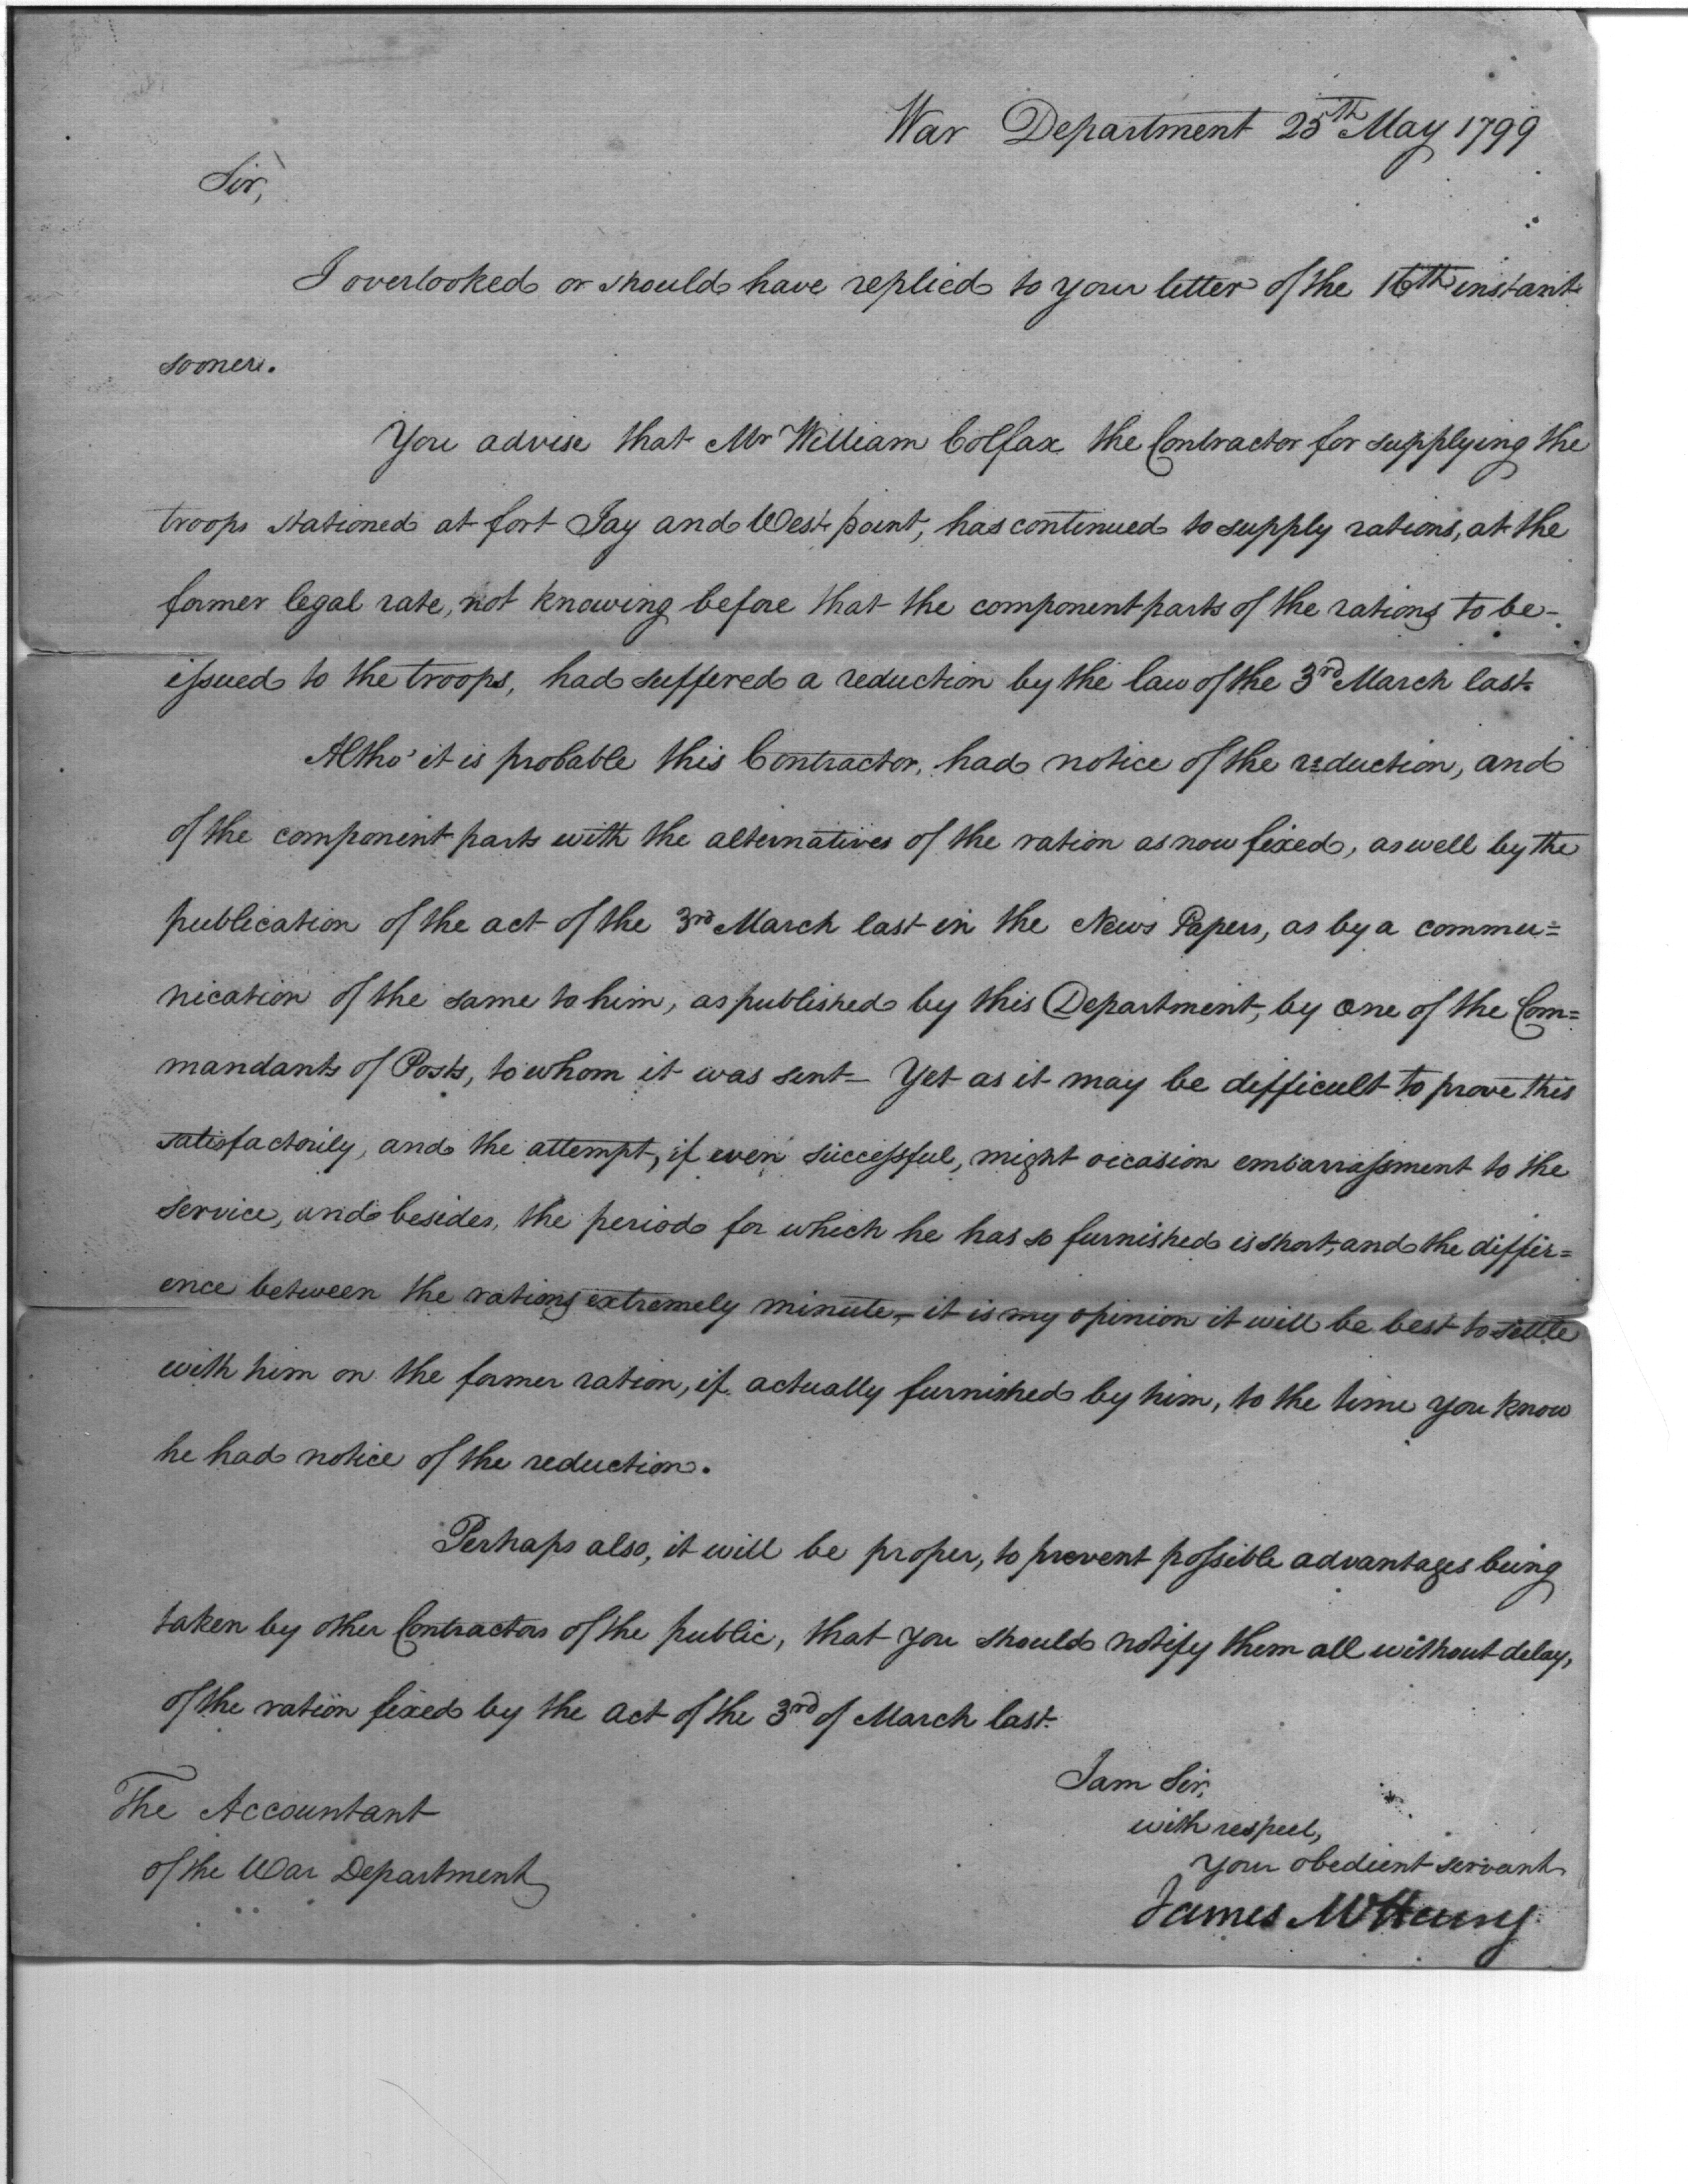 War Department 25th May 1799
Sir,
I overlooked or should have replied to your letter of the 16th instant
sooner.
You advise that Mr William Colfax the Contractor for supplying the
troops stationed at fort Jay and West point, has continued to supply rations, at the
former legal rate, not knowing before that the component parts of the rations to be
issued to the troops, had suffered a reduction by the law of the 3rd March last.
Altho' it is probable this Contractor, had notice of the reduction, and
of the component parts with the alternatives of the ration as now fixed, as well by the
publication of the act of the 3rd March last in the News Papers, as by a commu=
nication of the same to him, as published by this Department, by one of the Com=
mandants of Posts, to whom it was sent— Yet as it may be difficult to prove this
satisfactorily, and the attempt, if even successful, might occasion embarrassment to the
service, and besides, the period for which he has so furnished is short, and the differ=
ence between the rations extremely minute,— it is my opinion it will be best to settle
with him on the former ration, if actually furnished by him, to the time you know
he had notice of the reduction.
Perhaps also, it will be proper, to prevent possible advantages being
taken by other Contractors of the public, that you should notify them all without delay,
of the ration fixed by the act of the 3rd of March last.
I am Sir,
with respect,
your obedient servant
James McHenry
The Accountant
of the War Department